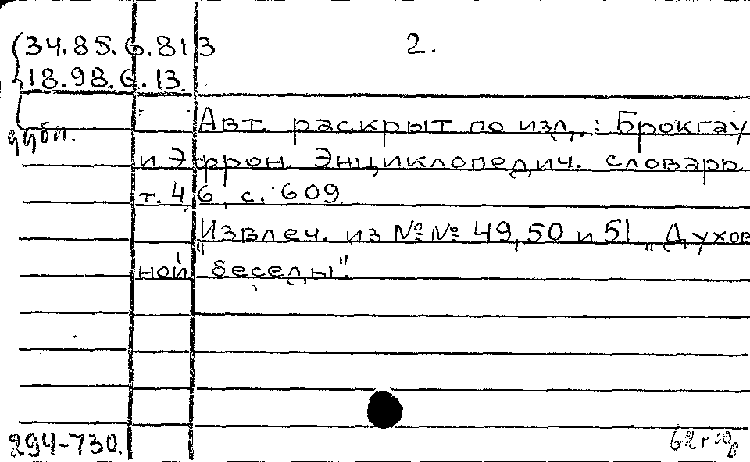 34.85.6.813 2.
18.98.6.13.
Авт. раскрыт по изд.: Брокгау
и Эфрон. Энциклопедич. словарь.
т. 46, с. 609
Извлеч. из №№ 49,50 и 51 „Духов
ной беседы".
294-730.